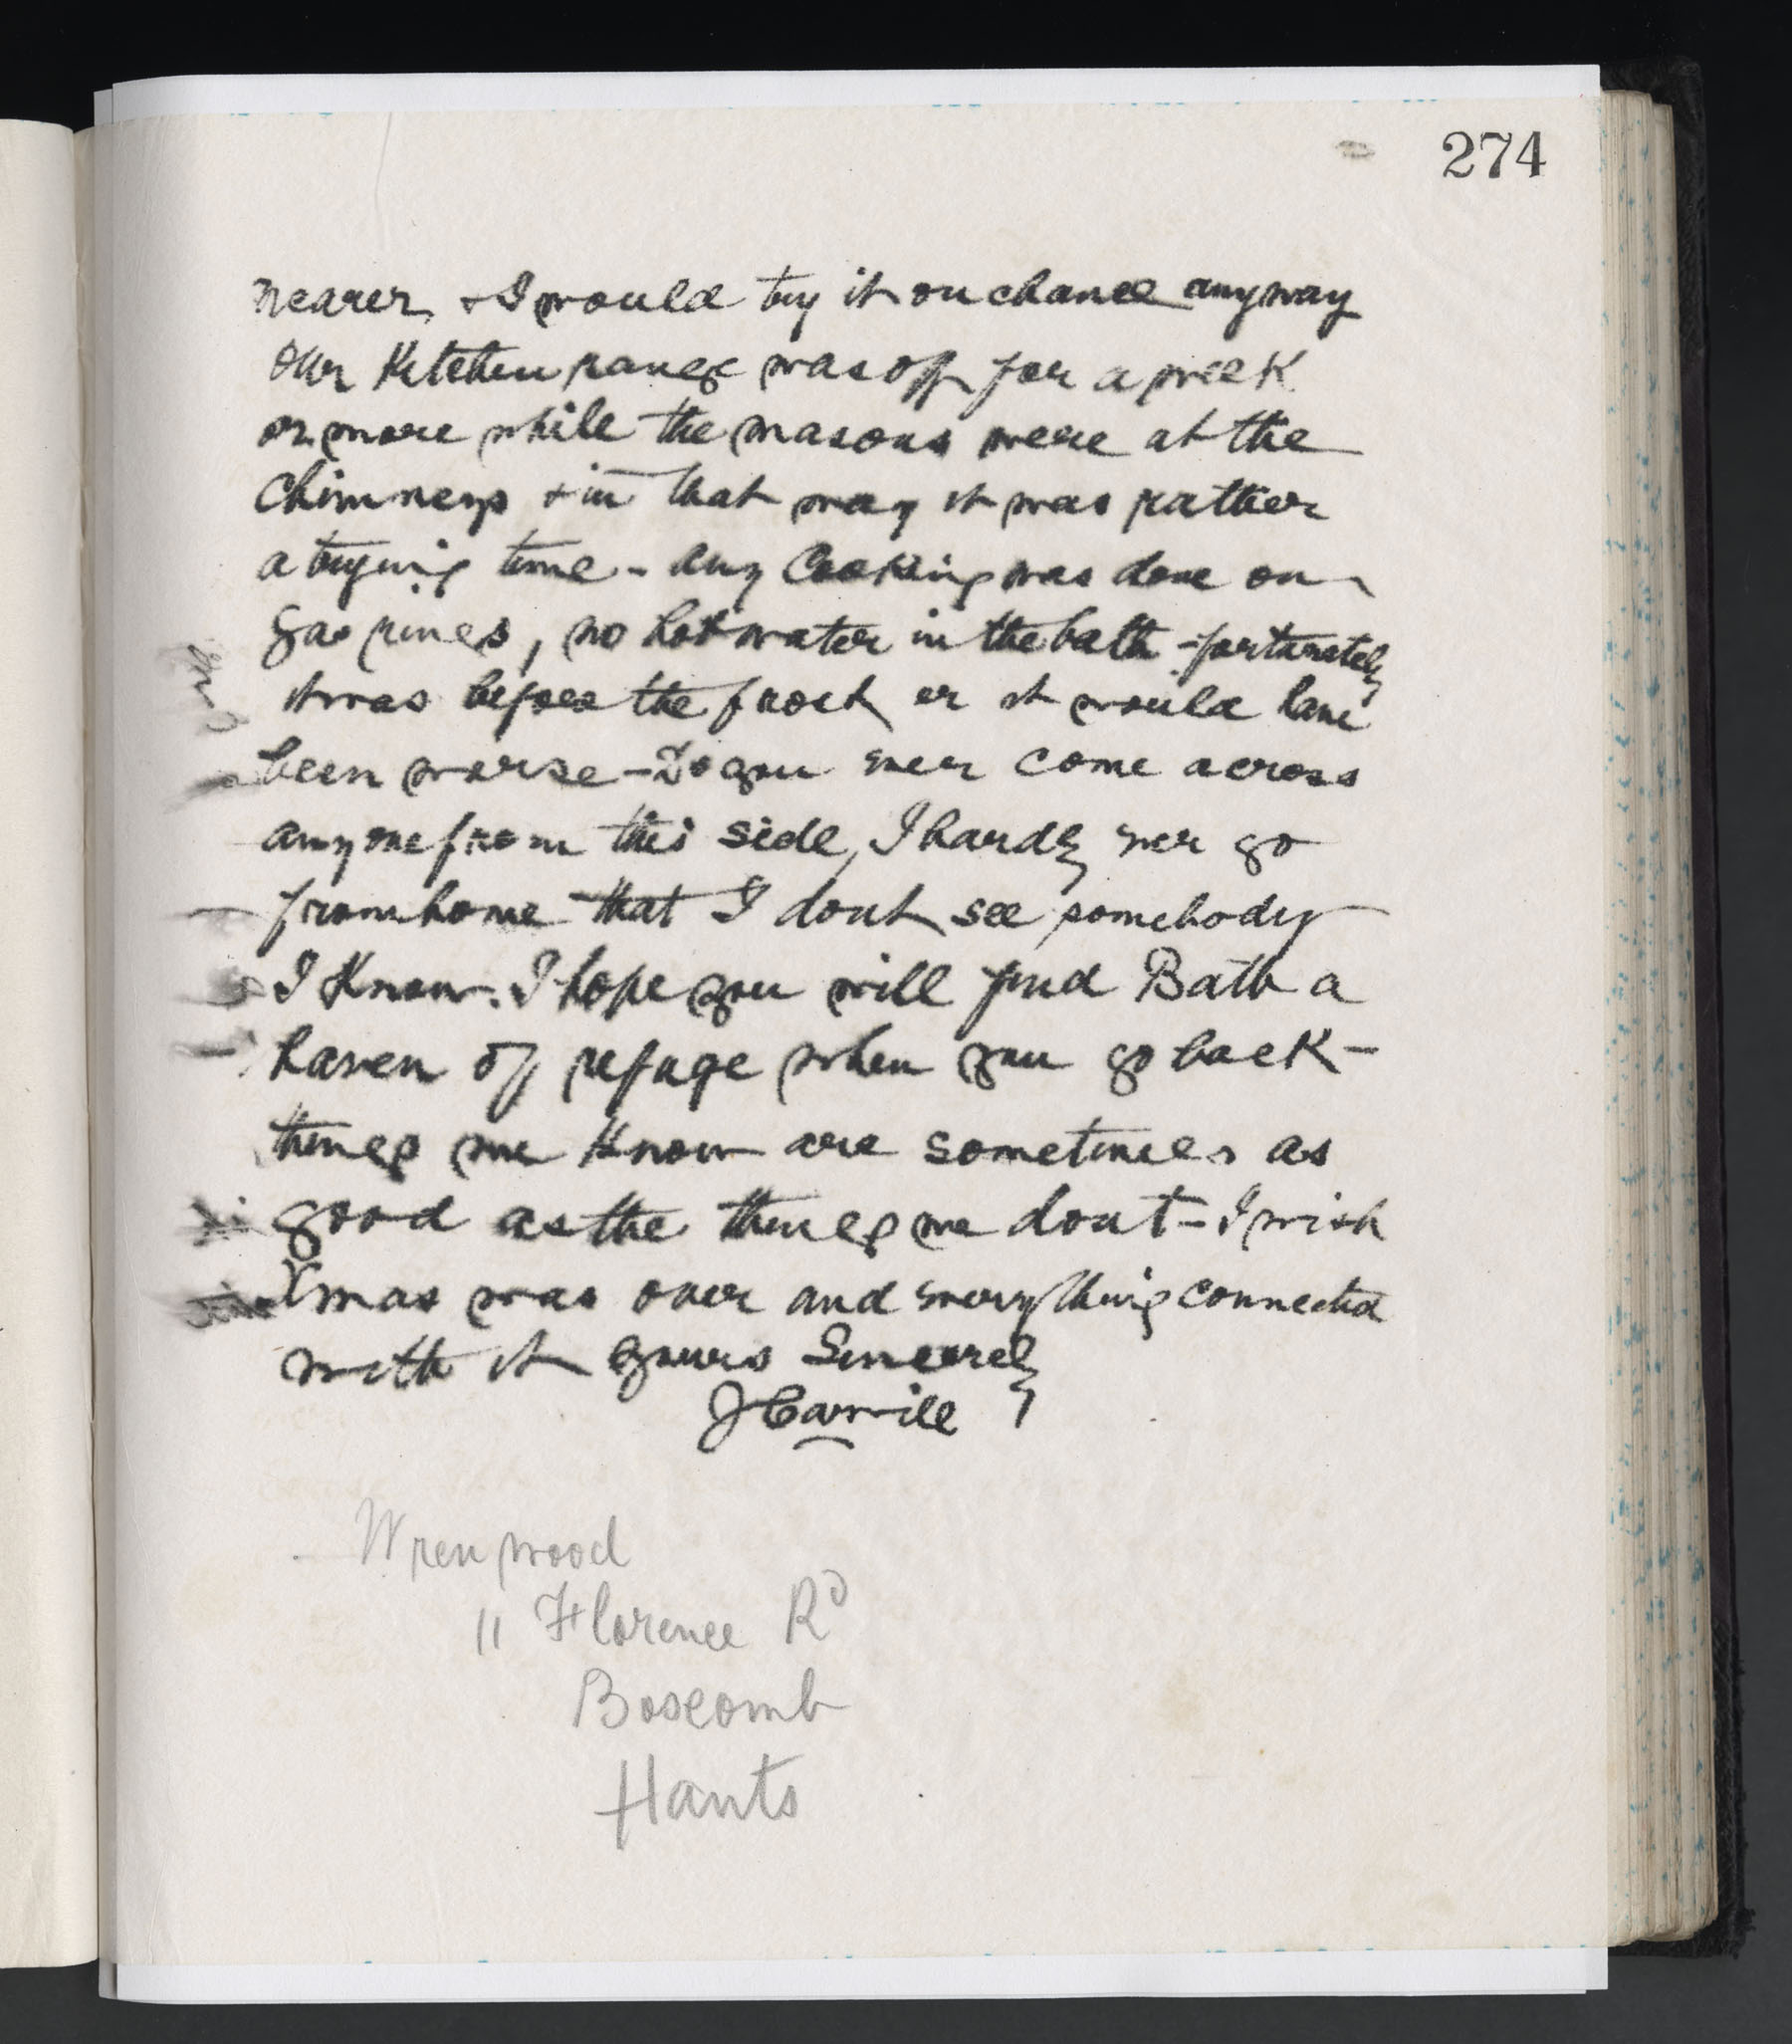 274
nearer, + I would try it on chance anyway
Our Kitchen range was off for a week
or more while the masons were at the
Chimneys + in that way it was rather
a trying time - Any Cooking was done on
gas rings, no hot water in the bath - fortunately
it was before the frost or it would have
been worse - Do you ever come across
anyone from this side, I hardly ever go
from home that I dont see somebody
I Know. I hope you will find Bath a
haven of refuge when you go back -
things we Know are sometimes as
good as the things we dont - I wish
Xmas was over and everything connected
with it yours Sincerely
J Carwill
Wrenwood
11 Florence Rd
Boscomb
Hants